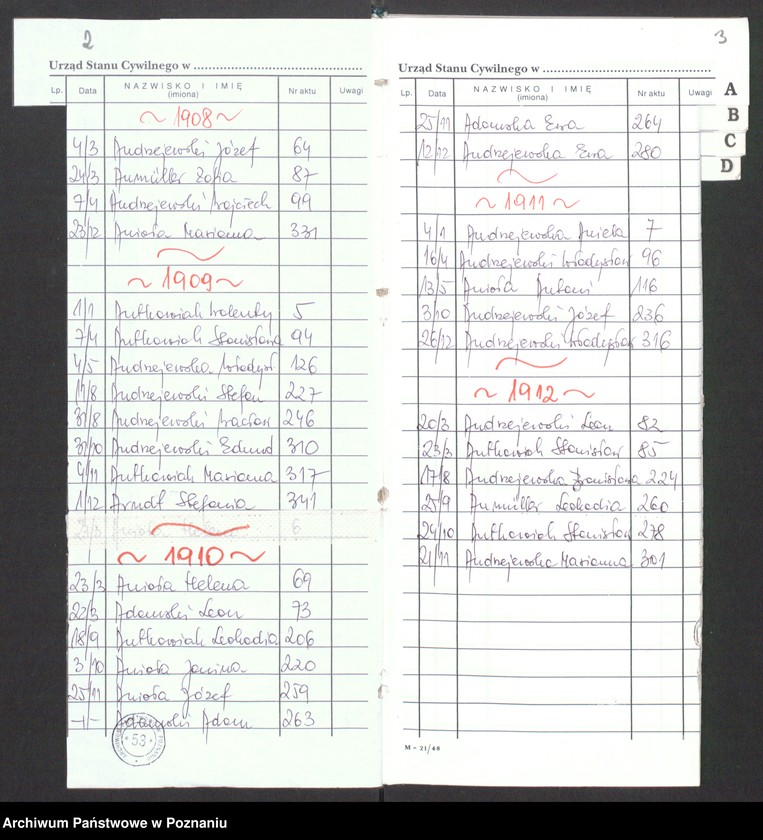 2
Urząd Stanu Cywilnego w
Lp. Data NAZWISKO I IMIĘ (imiona) Nr aktu Uwagi
~ 1908 ~
4/3 Andrzejewski Józef 64
24/3 Aumüller Zofia 87
7/4 Andrzejewski Wojciech 99
23/12 Anioła Marianna 331
~ 1909 ~
1/1 Antkowiak Walenty 5
7/4 Antkowiak Stanisława 94
4/5 Andrzejewska Władysł 126
17/8 Andrzejewski Stefan 227
31/8 Andrzejewski Wacław 246
31/10 Andrzejewski Edmund 310
4/11 Antkowiak Marianna 317
1/12 Arndt Stefania 341
6
~ 1910 ~
23/3 Anioła Helena 69
22/3 Adamski Leon 73
18/9 Antkowiak Leokadia 206
3/10 Anioła Janina 220
25/11 Anioła Józef 259
-"- Adamski Adam 263
53
3
Urząd Stanu Cywilnego w
Lp. Data NAZWISKO I IMIĘ (imiona) Nr aktu Uwagi
25/11 Adamska Ewa 264
12/12 Andrzejewska Ewa 280
~ 1911 ~
4/1 Andrzejewska Aniela 7
16/4 Andrzejewski Władysław 96
13/5 Anioła Antoni 116
3/10 Andrzejewski Józef 236
26/12 Andrzejewski Władysław 316
~ 1912 ~
20/3 Andrzejewski Leon 82
23/3 Antkowiak Stanisław 85
17/8 Andrzejewska Franciszka 224
25/9 Aumüller Leokadia 260
24/10 Antkowiak Stanisław 278
21/11 Andrzejewska Marianna 301
M - 21/48
A
B
C
D
Archiwum Państwowe w Poznaniu